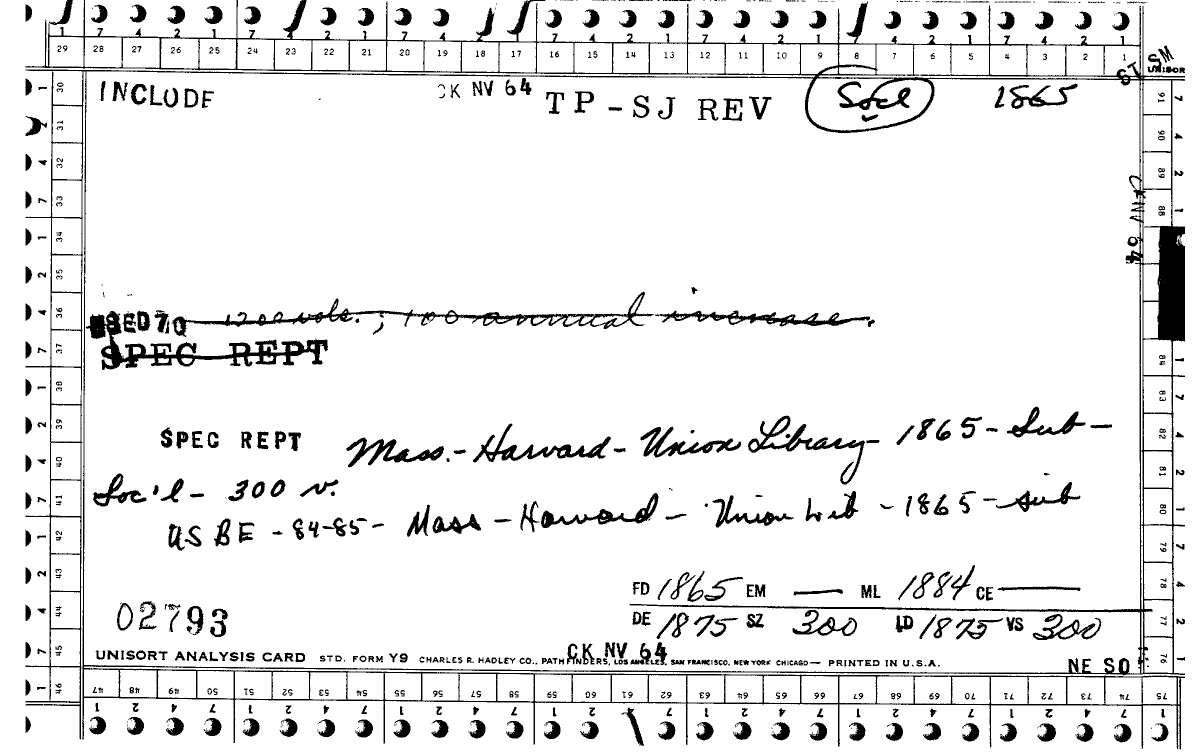 1 7 4 2 1 7 4 2 1 7 4 2 1 7 4 2 1 7 4 2 1 7 4 2 1 7 4 2 1
29 28 27 26 25 24 23 22 21 20 19 18 17 16 15 14 13 12 11 10 9 8 7 6 5 4 3 2 1
INCLUDE CK NV 64 TP-SJ REV Socl 1865
CK NV 64
USED 70 1200 vols. ; 100 annual increase.
SPEC REPT
SPEC REPT Mass.- Harvard- Union Library- 1865- Sub-
Soc'l- 300 v.
US BE -84-85- Mass - Harvard - Union Lib - 1865- sub
FD 1865 EM — ML 1884 CE —
02793 DE 1875 SZ 300 LD 1875 VS 300
CK NV 64
UNISORT ANALYSIS CARD STD. FORM Y9 CHARLES R. HADLEY CO., PATHFINDERS, LOS ANGELES, SAN FRANCISCO, NEW YORK CHICAGO— PRINTED IN U.S.A. NE SO
30 31 32 33 34 35 36 37 38 39 40 41 42 43 44 45 46
91 90 89 88 84 83 82 81 80 79 78 77 76
47 48 49 50 51 52 53 54 55 56 57 58 59 60 61 62 63 64 65 66 67 68 69 70 71 72 73 74 75